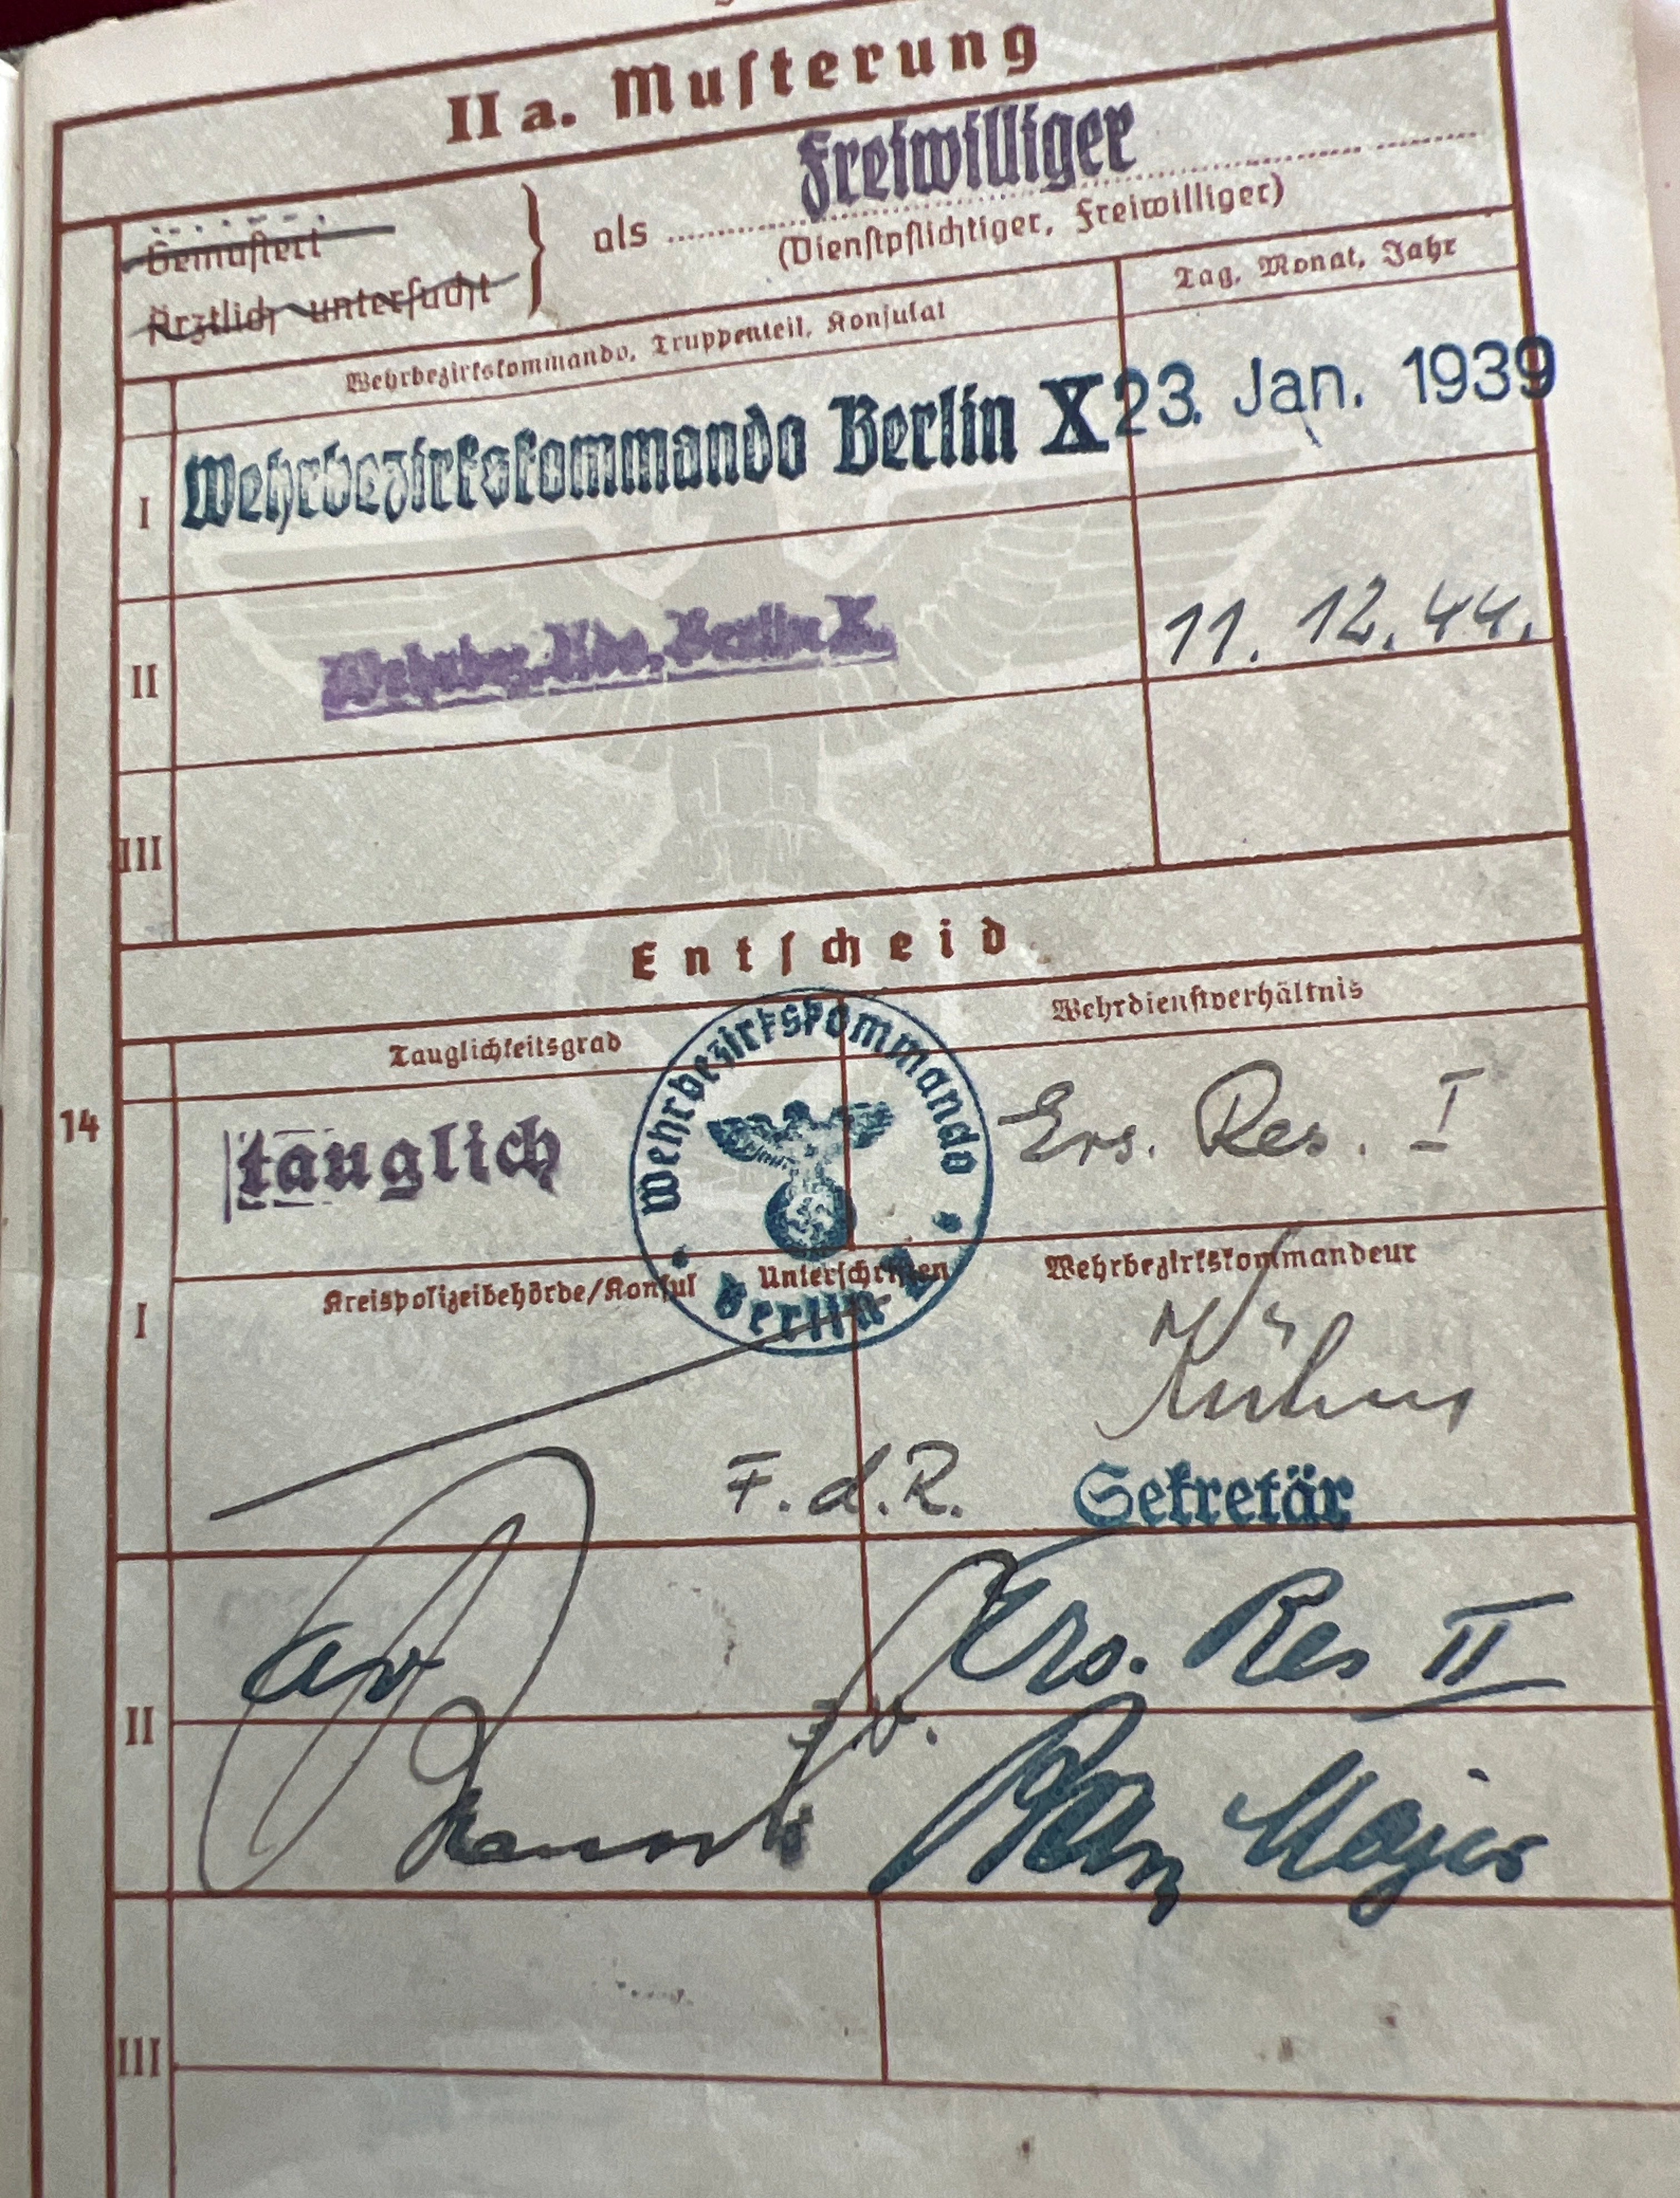 II a. Muſterung
Freiwilliger
Gemuſtert
Ärztlich unterſucht
als
(Dienſtpflichtiger, Freiwilliger)
Wehrbezirkskommando, Truppenteil, Konſulat
Tag, Monat, Jahr
I
Wehrbezirkskommando Berlin X
23. Jan. 1939
II
Wehrbez. Kdo. Berlin X.
11. 12. 44.
III
Entſcheid
Tauglichkeitsgrad
Wehrdienſtverhältnis
14
tauglich
Wehrbezirkskommando
Berlin
Ers. Res. I
I
Kreispolizeibehörde/Konſul
Unterſchriften
Wehrbezirkskommandeur
F. d. R.
Sekretär
II
av
Ers. Res II
Major
III